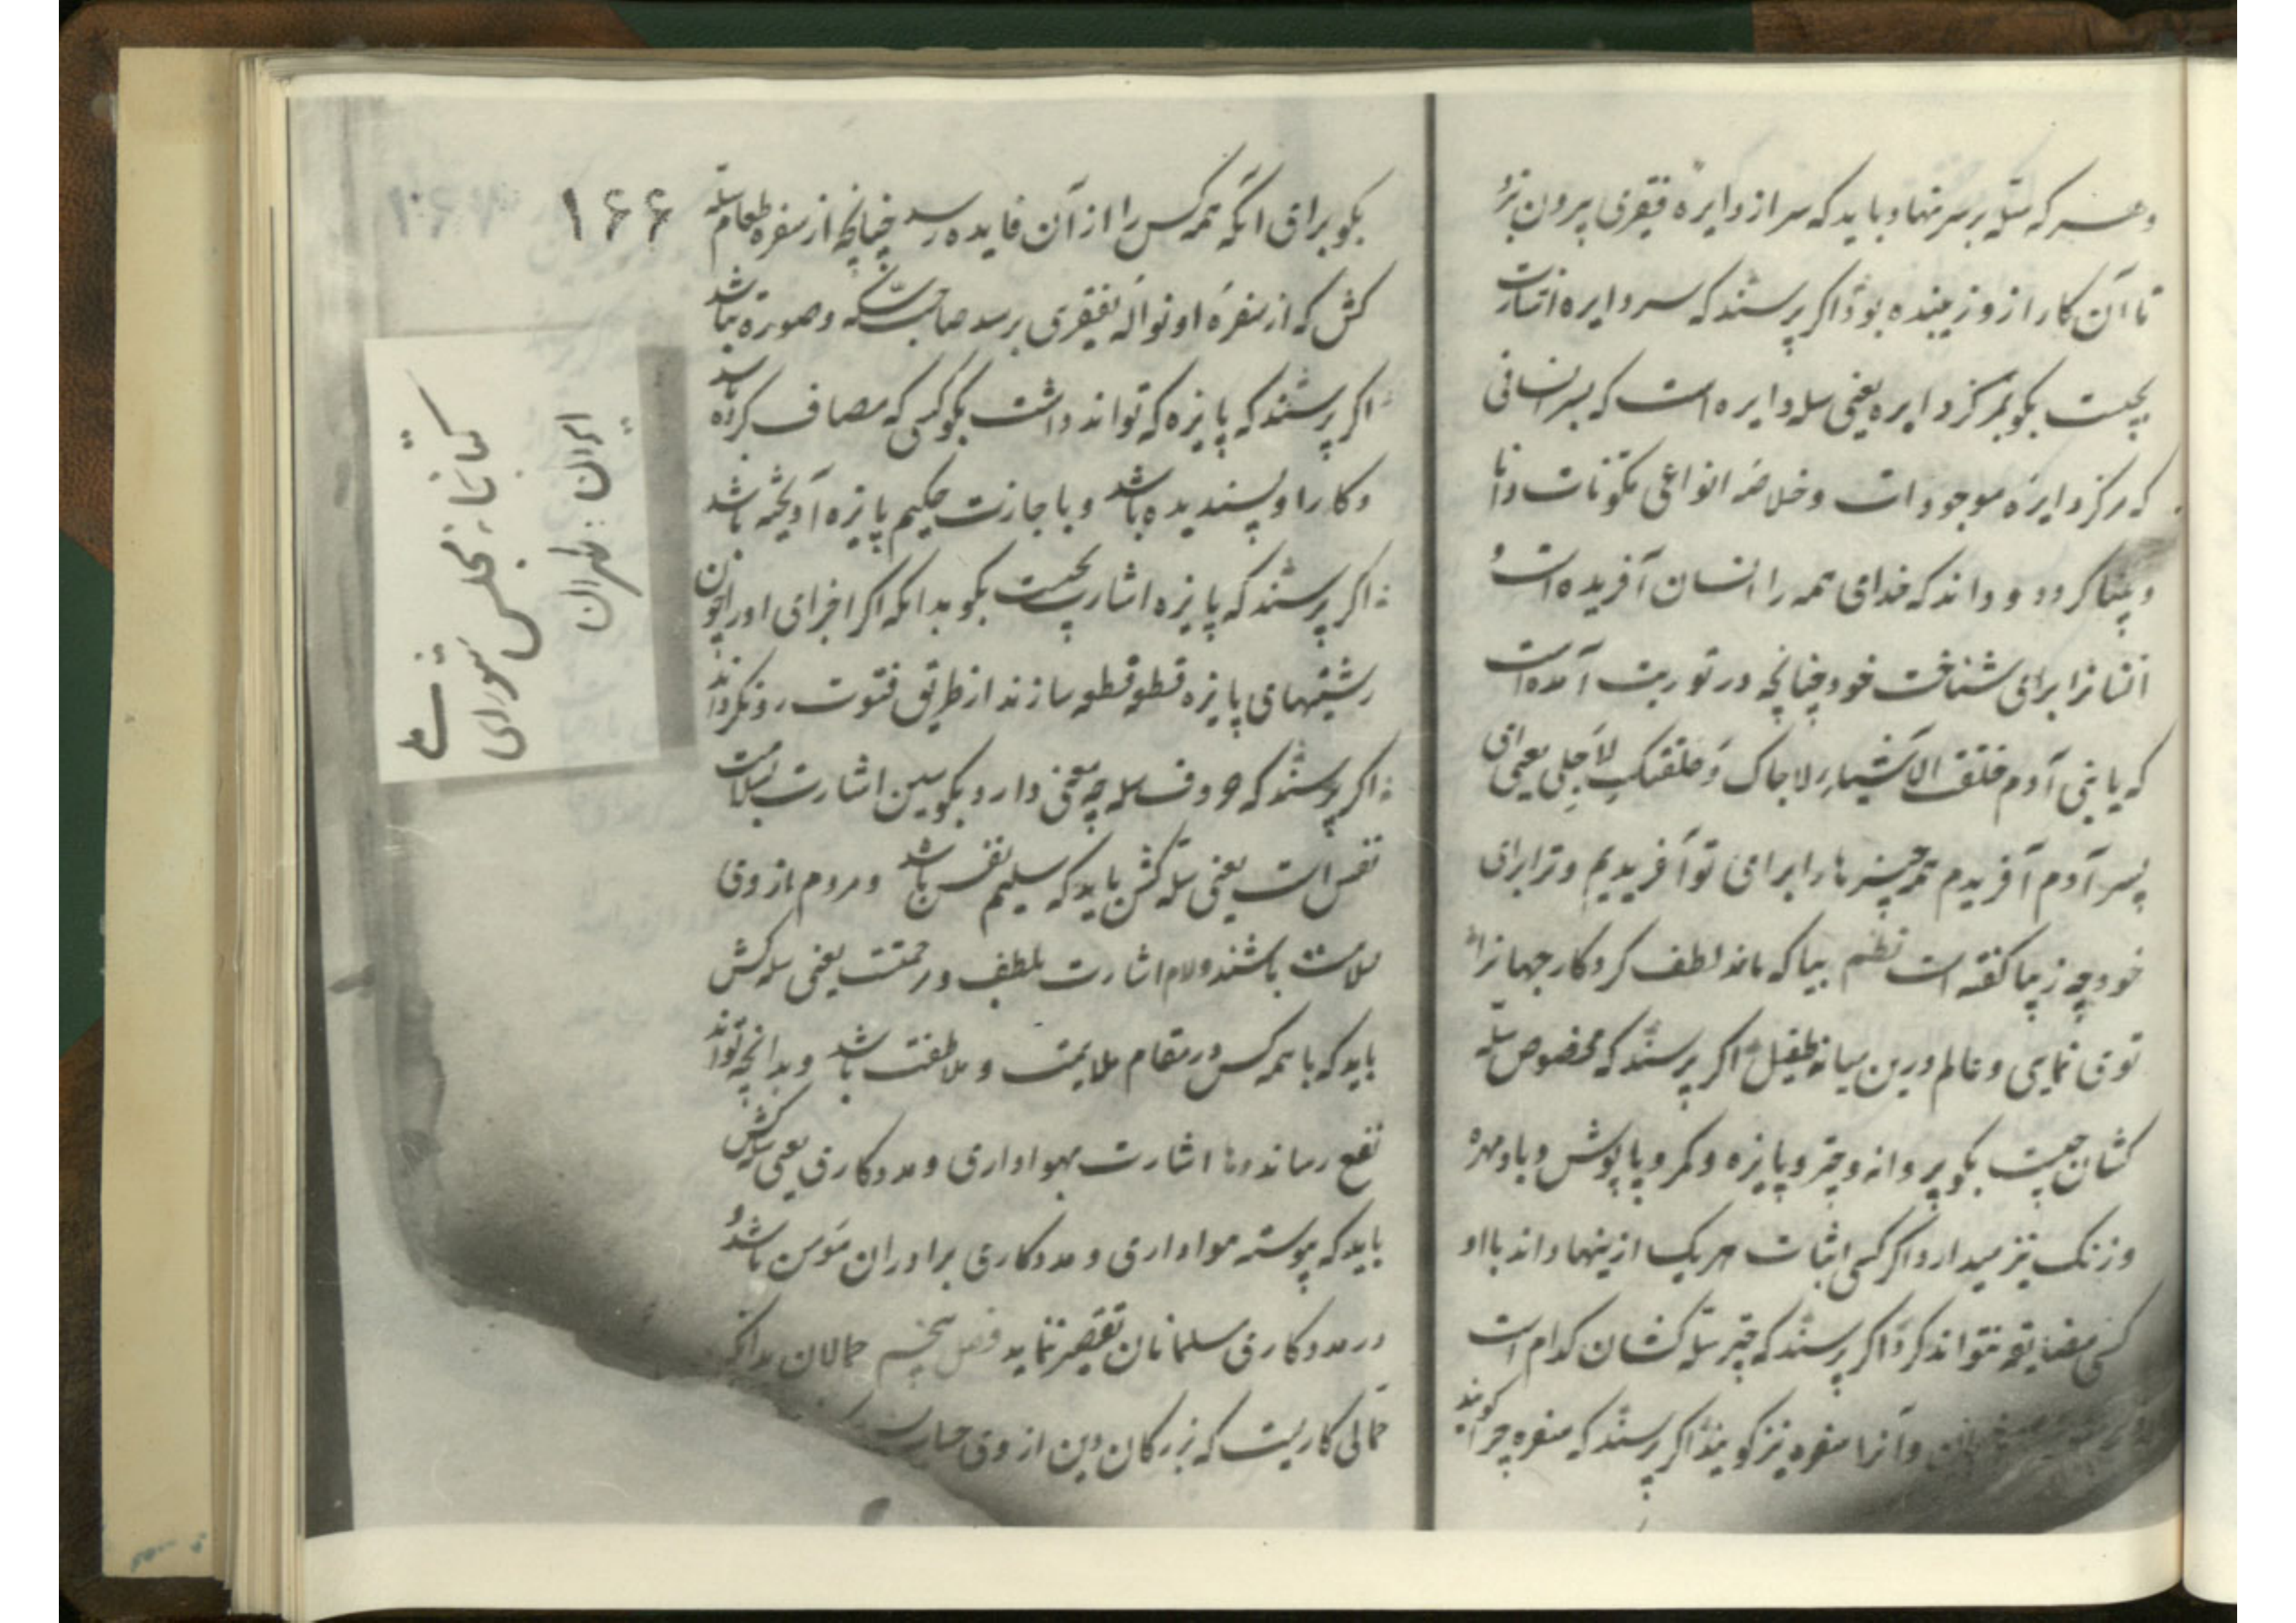 وهر که سله بر سر نهاد باید که سر از دایره فقیری بیرون نبرد
تا آن کار ازو زیبنده بود اکر پرسند که سر دایره اشارت
بچیست بکو بمرکز دایره یعنی سله دایره است که بسر انسانی
که مرکز دایرهٔ موجودات وخلاصهٔ انواعی مکونات دانا
وبینا کردد و داند که خدای همه را انسان آفریده است و
انسانرا برای شناخت خود چنانچه در توریت آمده است
که یا بنی آدم خلقت الاشیاء لاجلک وخلقتک لاجلی یعنی ای
پسر آدم آفریدم همه چیزها را برای تو آفریدیم و ترا برای
خود وچه زیبا کفته است نظم بیا که مائد لطف کردکار جهانرا
توی نمایی و عالم درین میانه طفیل اکر پرسند که مخصوص سله
کشان چیست بکو پروانه وچتر وپایزه وکمر وپاپوش وبادمهره
وزنک نیز میدارد اکر کسی اثبات هریک ازینها داند با او
کسی مضایقه نتواند کرد اکر پرسند که چتر سله کشان کدام است
وآنرا سفره نیز کویند اکر پرسند که سفره چرا کویند
۱۶۶
بکو برای آنکه همه کس را از آن فایده رسد چنانچه از سفره طعام سله
کش که از سفرهٔ او نواله بفقیری برسد صاحب وصورة نباشد
اکر پرسند که پایزه که تواند داشت بکو کسی که مصاف کرده باشد
وکار او پسندیده باشد وباجازت حکیم پایزه آویخته باشد
اکر پرسند که پایزه اشارت بچیست بکو بدانکه اکر اجزای او را چون
رشتهای پایزه قطعه قطعه سازند از طریق فتوت رو نکرداند
اکر پرسند که حروف سله چه معنی دارد بکو سین اشارت بسلامت
نفس است یعنی سله کش باید که سلیم نفس باشد ومردم از وی
سلامت باشند ولام اشارت بلطف ورحمتست یعنی سله کش
باید که با همه کس در مقام ملایمت و ملاطفت باشد وبدانچه تواند
نفع رساند وها اشارت بهواداری ومددکاری یعنی سله کش
باید که پیوسته هواداری ومددکاری برادران مؤمن باشد و
در مددکاری مسلمانان تقصیر ننماید فصل پنجم حمالان بدانکه
حمالی کاریست که بزرکان دین از وی
کتابخانه مجلس شورای ملی
ایران : طهران